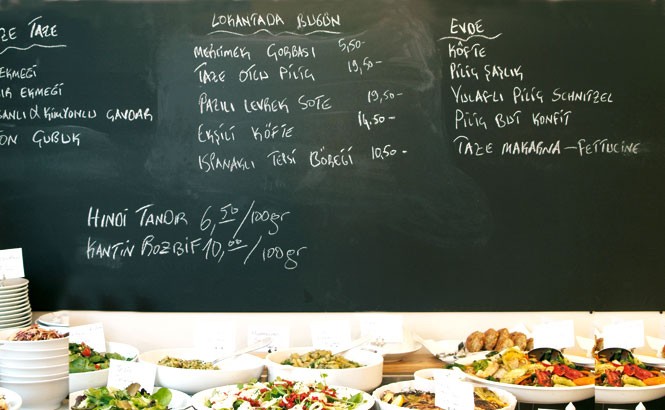 ZE TAZE
EKMEĞİ
IR EKMEĞİ
SANLI & KİMYONLU ÇAVDAR
TON ÇUBUK
LOKANTADA BUGÜN
MERCİMEK ÇORBASI 5,50-
TAZE OTLU PİLİÇ 19,50-
PAZILI LEVREK SOTE 19,50-
EKŞİLİ KÖFTE 14.50-
ISPANAKLI TEPSİ BÖREĞİ 10,50-
EVDE
KÖFTE
PİLİÇ ŞAŞLIK
YULAFLI PİLİÇ SCHNITZEL
PİLİÇ BUT KONFİT
TAZE MAKARNA - FETTUCINE
HİNDİ TANDIR 6,50/100gr
KANTİN ROZBİF 10,00/100gr